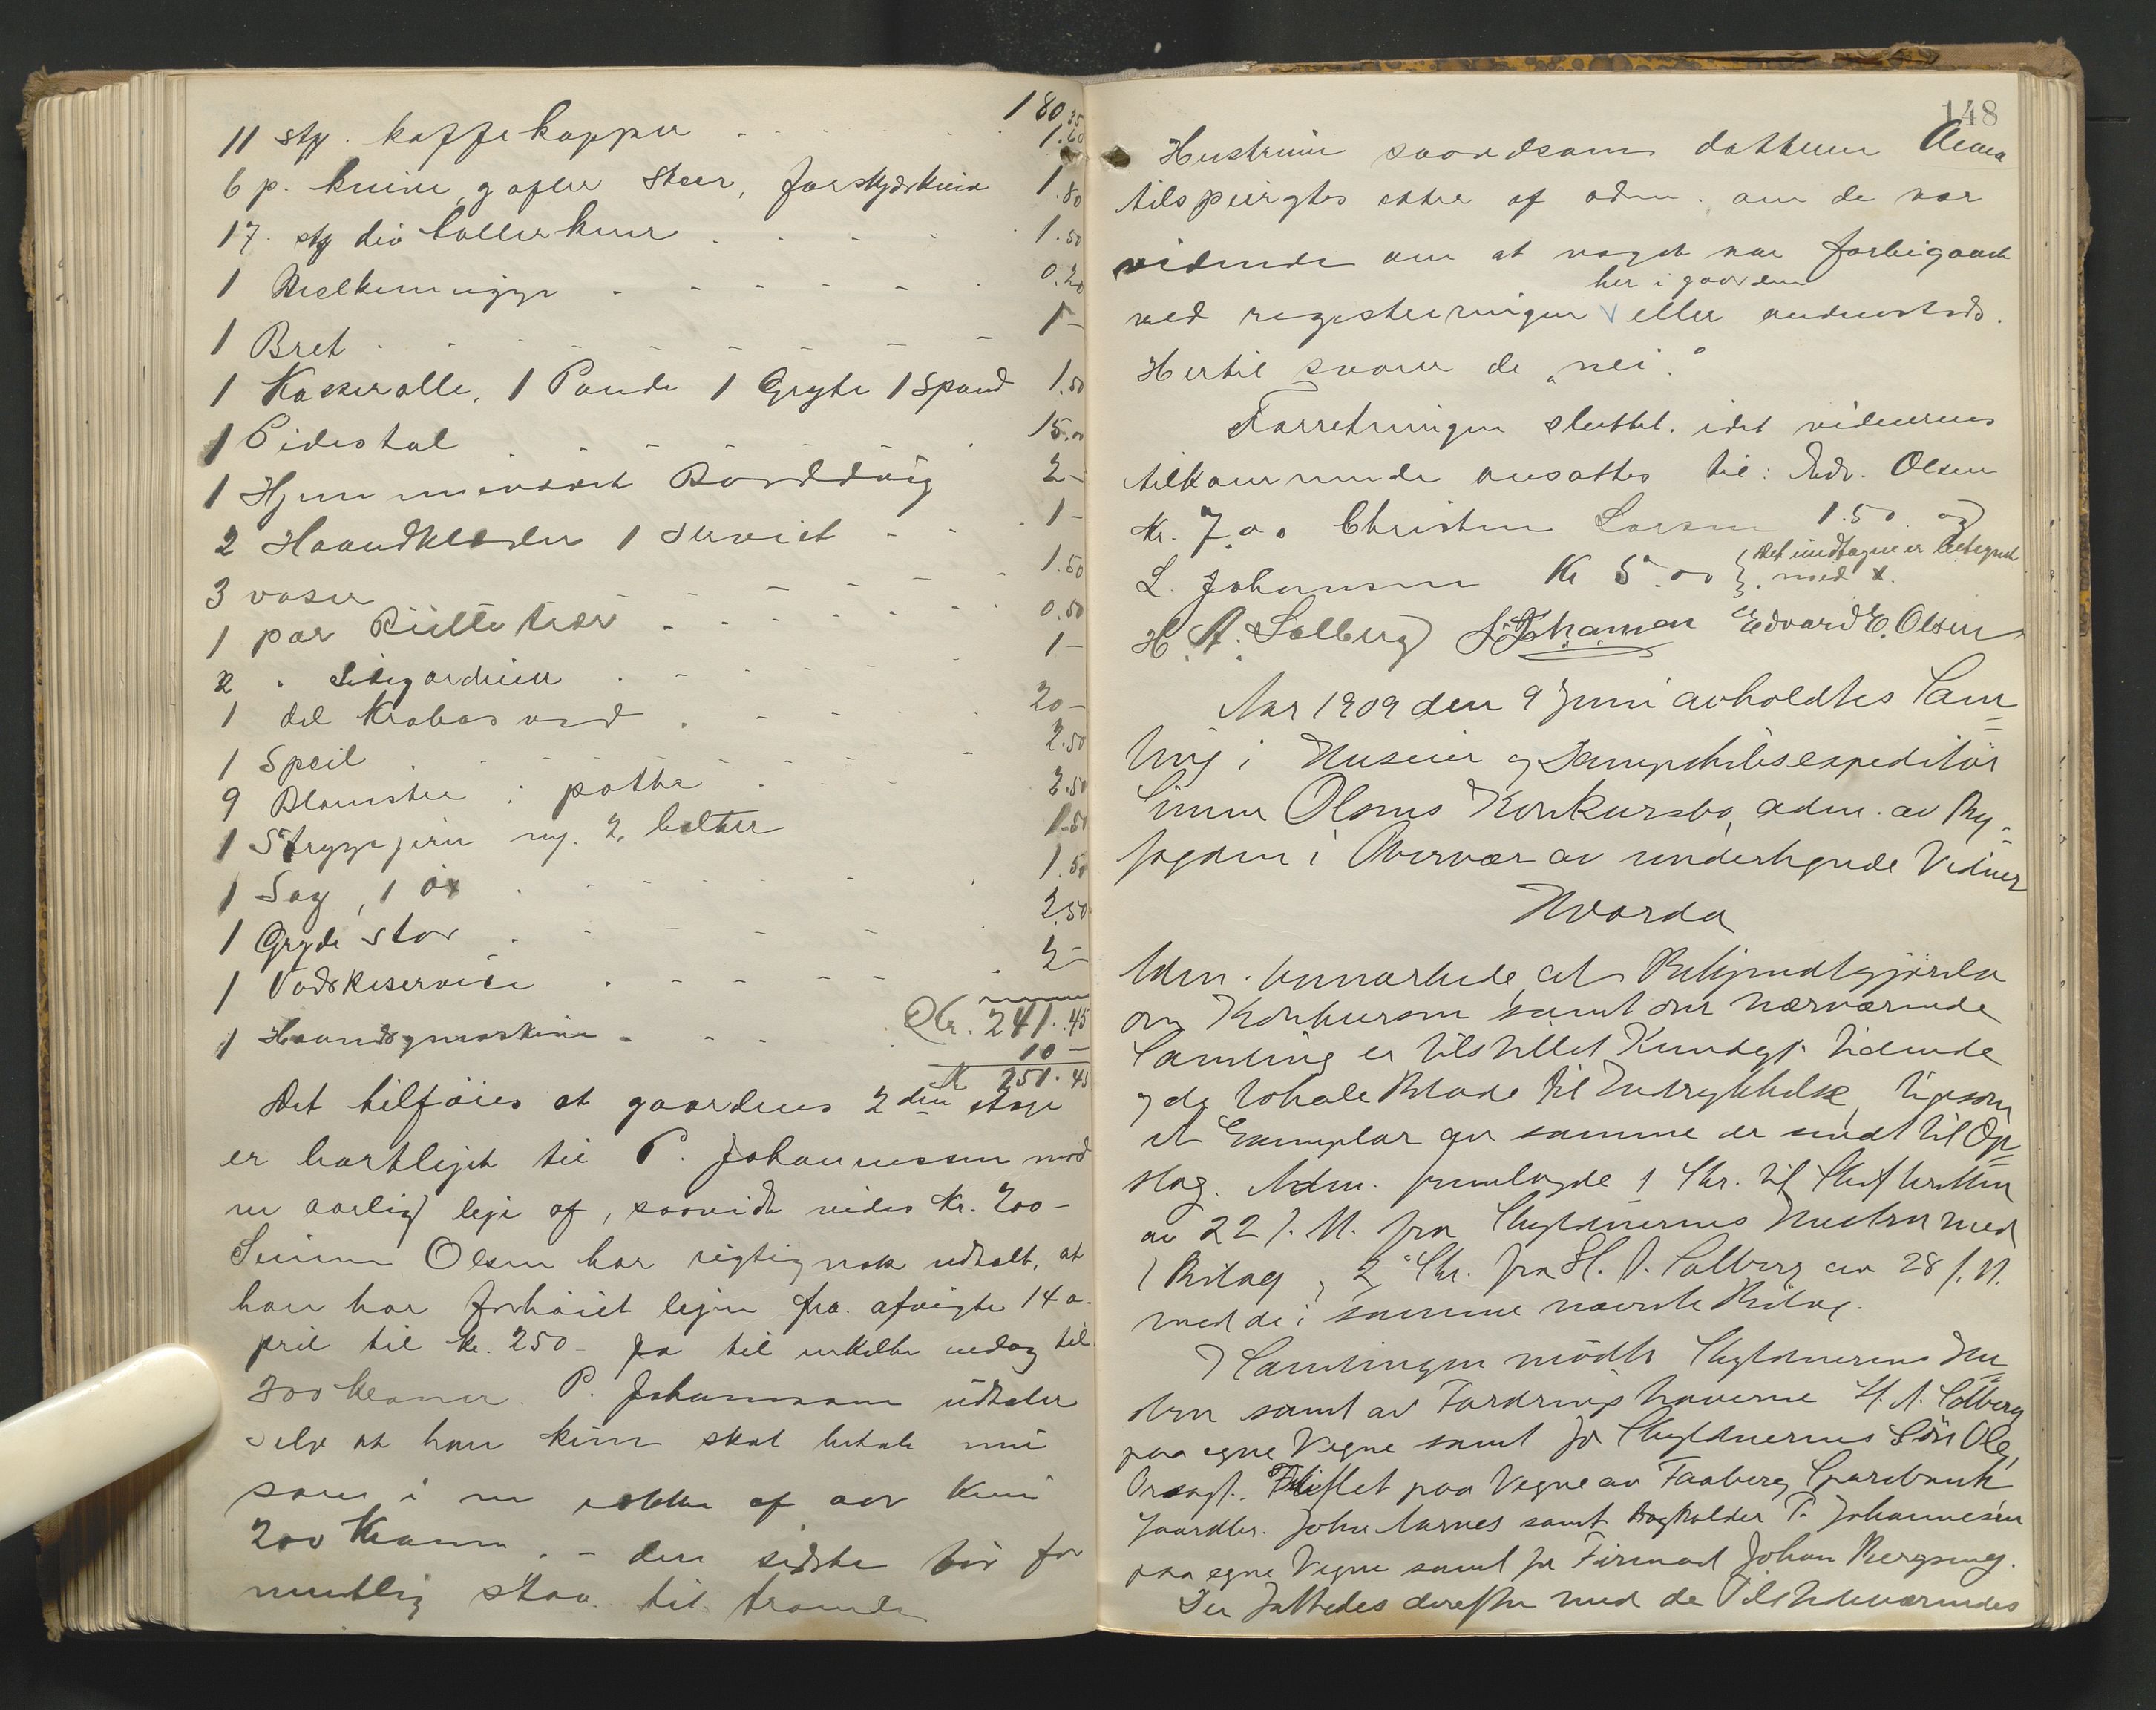 180.35
11 stk. kaffekopper . . . . 1.60
6 p. knive, gafler Skeer, forskjærkniv 1.80
17. stk div tallerkener . . . . 1.50
1 Melkemugge - - - - - . 0.20
1 Bret - - - - - - - 1 -
1 Kasserolle, 1 Pande 1 Gryte 1 Spand 1.50
1 Pidestal - - - . 15.00
1 Hjemmevævet Borddug 2 -
2 Haandklæder 1 Serviet - - . 1 -
3 vaser - - - - - . 1.50
1 par Rulletrær . . . . . 0.50
2 " Lidgardiner . - - - 1 -
1 del Krabasved . - - - . 20 -
1 Speil . - - - - - 2.50
9 Blomster i potter . . . . 2.50
1 Strygejern m. 2 bolter 1.50
1 Sag, 1 Øx . - - - - . 1.50
1 Gryde stor . - - - - 2.50
1 Vadskeservice . - - - - . 2 -
Kr. 241.45
1 Haandsymaskine - - - . 10 -
Kr 251.45
Det tilføies at gaardens 2den etage
er bortlejet til P. Johannessen mod
en aarlig leje af, saavidt vides Kr. 200 -
Simen Olsen har rigtignok udtalt, at
han har forhøiet lejen fra afvigte 14 a-
pril til kr. 250 - ja til enkelte endog til
300 kroner. P. Johannessen udtaler
selv at han kun skal betale nu
som i en række af aar kun
200 Kroner. - den sidste bør for
mentlig staa til troende
148
Hustruen saavelsom datteren Anna
tilspurgtes efter af adm. om de var
vidende om at noget var forbigaaet
her i gaarden
ved registreringen √ eller andensteds.
Hertil svarer de "nei".
Forretningen sluttet. idet vidnernes
tilkommende ansattes til: Edv. Olsen
Kr. 7.00 Christen Larsen 1.50 og
L. Johansen Kr 5.00 } Det undtagne er betegnet
med x.
H. A. Solberg L Johansen Edvard E. Olsen
Aar 1909 den 9 Juni avholdtes Sam
ling i Huseier og Dampskibsexpeditør
Simen Olsens Konkursbo, adm. av By-
fogden i Overvær av undertegnede Vidner
Hvorda
Adm. bemærkede, at Bekjendtgjørelse
om Konkursen samt om nærværende
Samling er tilstillet Kundgj. tidende
og de lokale Blade til Indrykkelse, ligesom
et Exemplar av samme er sendt til Op
slag. Adm. fremlagde 1 Skr. til Skifteretten
av 22 f. M. fra Skyldnerens Hustru med
1 Bilag, 2 Skr. fra H. A. Solberg av 28 f. M.
med de i samme nævnte Bilag.
I Samlingen mødte Skyldnerens Hu
stru samt av Fordringshaverne H. A. Solberg
paa egne Vegne samt for Skyldnerens Søn Ole,
Orsagf. Fliflet paa Vegne av Faaberg Sparebank
Gaardbr. John Aarnes samt Bogholder P. Johannesen
paa egne Vegne samt for Firmaet Johan Bergseng.
Der fattedes derefter med de Tilstedeværendes